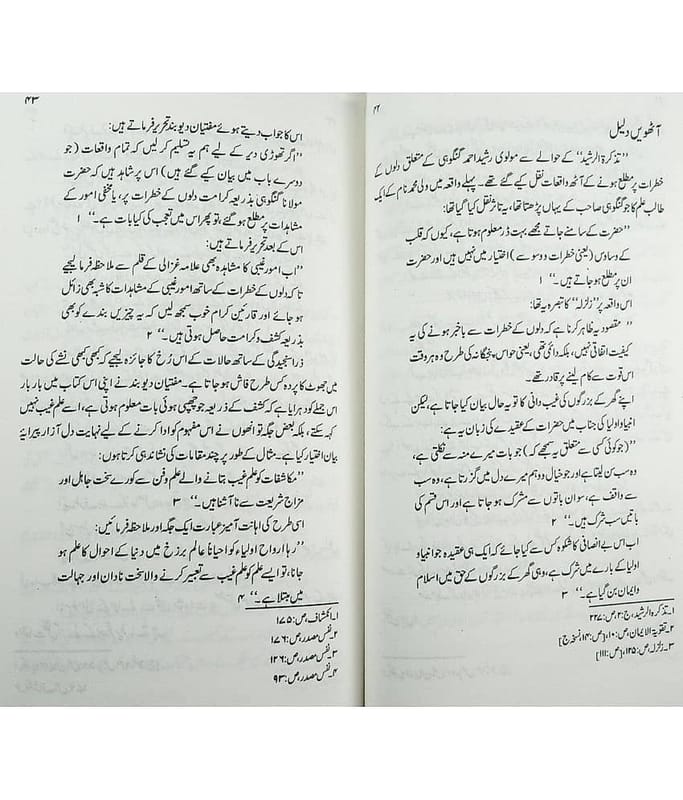 ۴۲
آٹھویں دلیل
’’تذکرۃ الرشید‘‘ کے حوالے سے مولوی رشید احمد گنگوہی کے متعلق دلوں کے
خطرات پر مطلع ہونے کے آٹھ واقعات نقل کیے گئے تھے۔ پہلے واقعہ میں ولی محمد نام کے ایک
طالب علم کا جو گنگوہی صاحب کے یہاں پڑھتا تھا، یہ تاثر نقل کیا گیا تھا:
’’حضرت کے سامنے جاتے مجھے بہت ڈر معلوم ہوتا ہے، کیوں کہ قلب
کے وساوس (یعنی خطرات و وسوسے) اختیار میں نہیں ہیں اور حضرت
ان پر مطلع ہو جاتے ہیں۔‘‘ ۱
اس واقعہ پر ’’زلزلہ‘‘ کا تبصرہ یہ تھا:
’’مقصود یہ ظاہر کرنا ہے کہ دلوں کے خطرات سے باخبر ہونے کی یہ
کیفیت اتفاقی نہیں، بلکہ دائمی تھی، یعنی حواس پنجگانہ کی طرح وہ ہر وقت
اس قوت سے کام لینے پر قادر تھے۔
اپنے گھر کے بزرگوں کی غیب دانی کا تو یہ حال بیان کیا جاتا ہے، لیکن
انبیا و اولیا کی جناب میں حضرات کے عقیدے کی زبان یہ ہے:
’’(جو کوئی کسی سے متعلق یہ سمجھے کہ) جو بات میرے منہ سے نکلتی ہے،
وہ سب سن لیتا ہے اور جو خیال و وہم میرے دل میں گزرتا ہے، وہ سب
سے واقف ہے، سو ان باتوں سے مشرک ہو جاتا ہے اور اس قسم کی
باتیں سب شرک ہیں۔‘‘ ۲
اب اس بے انصافی کا شکوہ کس سے کیا جائے کہ ایک ہی عقیدہ جو انبیا و
اولیا کے بارے میں شرک ہے، وہی گھر کے بزرگوں کے حق میں اسلام
و ایمان بن گیا ہے۔‘‘ ۳
۱۔ تذکرۃ الرشید، ج:۲، ص:۲۲۷
۲۔ تقویۃ الایمان، ص:۱۰، [ص:۱۴، نسخہ ج]
۳۔ زلزلہ، ص:۱۲۵، [ص:۱۱۱]
۴۳
اس کا جواب دیتے ہوئے مفتیان دیوبند تحریر فرماتے ہیں:
’’اگر تھوڑی دیر کے لیے ہم یہ تسلیم کر لیں کہ تمام واقعات (جو
دوسرے باب میں بیان کیے گئے ہیں) اس پر شاہد ہیں کہ حضرت
مولانا گنگوہی بذریعہ کرامت دلوں کے خطرات پر، یا مخفی امور کے
مشاہدات پر مطلع ہو گئے، تو پھر اس میں تعجب کی کیا بات ہے۔‘‘ ۱
اس کے بعد تحریر فرماتے ہیں:
’’اب امور غیبی کا مشاہدہ بھی علامہ غزالی کے قلم سے ملاحظہ فرما لیجیے
تا کہ دلوں کے خطرات کے ساتھ امور غیبی کے مشاہدات کا شبہ بھی زائل
ہو جائے اور قارئین کرام خوب سمجھ لیں کہ یہ چیزیں بندے کو بھی
بذریعہ کشف و کرامت حاصل ہوتی ہیں۔‘‘ ۲
ذرا سنجیدگی کے ساتھ حالات کے اس رُخ کا جائزہ لیجیے کہ کبھی کبھی نشے کی حالت
میں جھوٹ کا پردہ کس طرح فاش ہو جاتا ہے۔ مفتیان دیوبند نے اپنی اس کتاب میں بار بار
اس جملے کو دہرایا ہے کہ کشف کے ذریعہ جو چھپی ہوئی بات معلوم ہوتی ہے، اسے علم غیب نہیں
کہہ سکتے، بلکہ بعض جگہ تو انھوں نے اس مفہوم کو ادا کرنے کے لیے نہایت دل آزار پیرایۂ
بیان اختیار کیا ہے۔ مثال کے طور پر چند مقامات کی نشاندہی کرتا ہوں:
’’مکاشفات کو علم غیب بتانے والے علم و فن سے کورے سخت جاہل اور
مزاج شریعت سے نا آشنا ہیں۔‘‘ ۳
اسی طرح کی اہانت آمیز عبارت ایک جگہ اور ملاحظہ فرمائیں:
’’رہا ارواح اولیاء کو احیاناً عالم برزخ میں دنیا کے احوال کا علم ہو
جانا، تو ایسے علم کو علم غیب سے تعبیر کرنے والا سخت نادان اور جہالت
میں مبتلا ہے۔‘‘ ۴
۱۔ انکشاف، ص:۱۷۵
۲۔ نفس مصدر، ص:۱۷۶
۳۔ نفس مصدر، ص:۱۲۶
۴۔ نفس مصدر، ص:۹۳